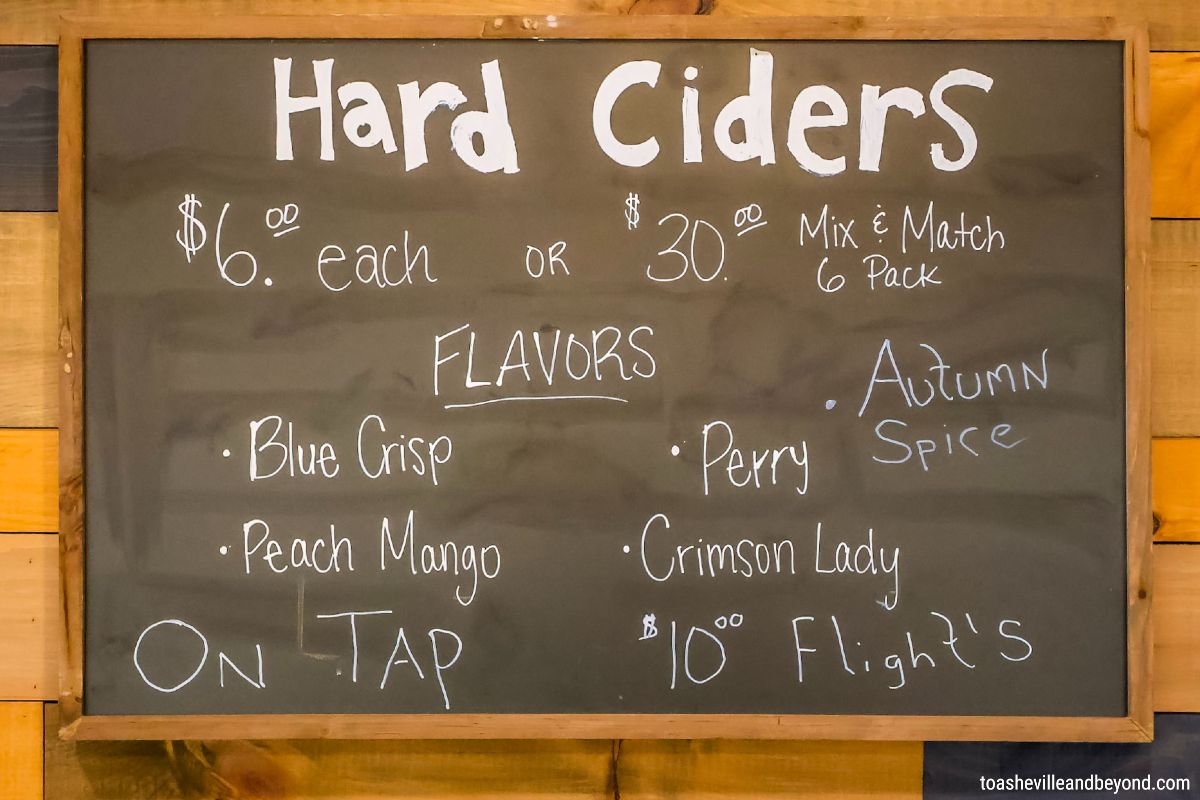 Hard Ciders
$6.00 each OR $30.00 Mix & Match
6 Pack
FLAVORS
• Autumn
Spice
• Blue Crisp • Perry
• Peach Mango • Crimson Lady
On Tap $10.00 Flight's
toashevilleandbeyond.com